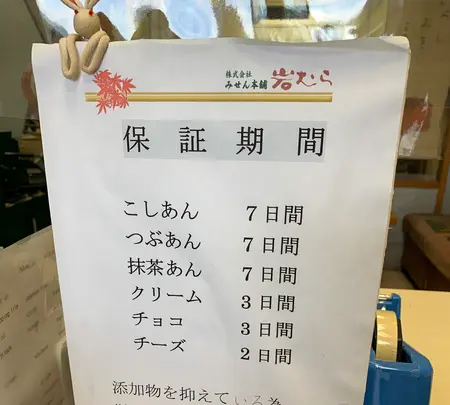 株式会社
みせん本舗 岩むら
保証期間
こしあん 7日間
つぶあん 7日間
抹茶あん 7日間
クリーム 3日間
チョコ 3日間
チーズ 2日間
添加物を抑えている為